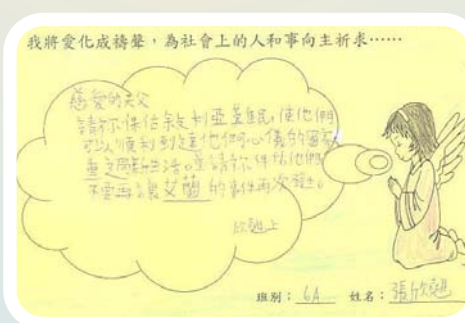 我將愛化成禱聲，為社會上的人和事向主祈求……
慈愛的天父
請祢保佑敍利亞難民，使他們
可以順利到達他們心儀的國家
重之開新生活。並請祢保佑他們
不要再讓艾蘭的事件再次發生。
欣翹上
班別：6A 姓名：張欣翹